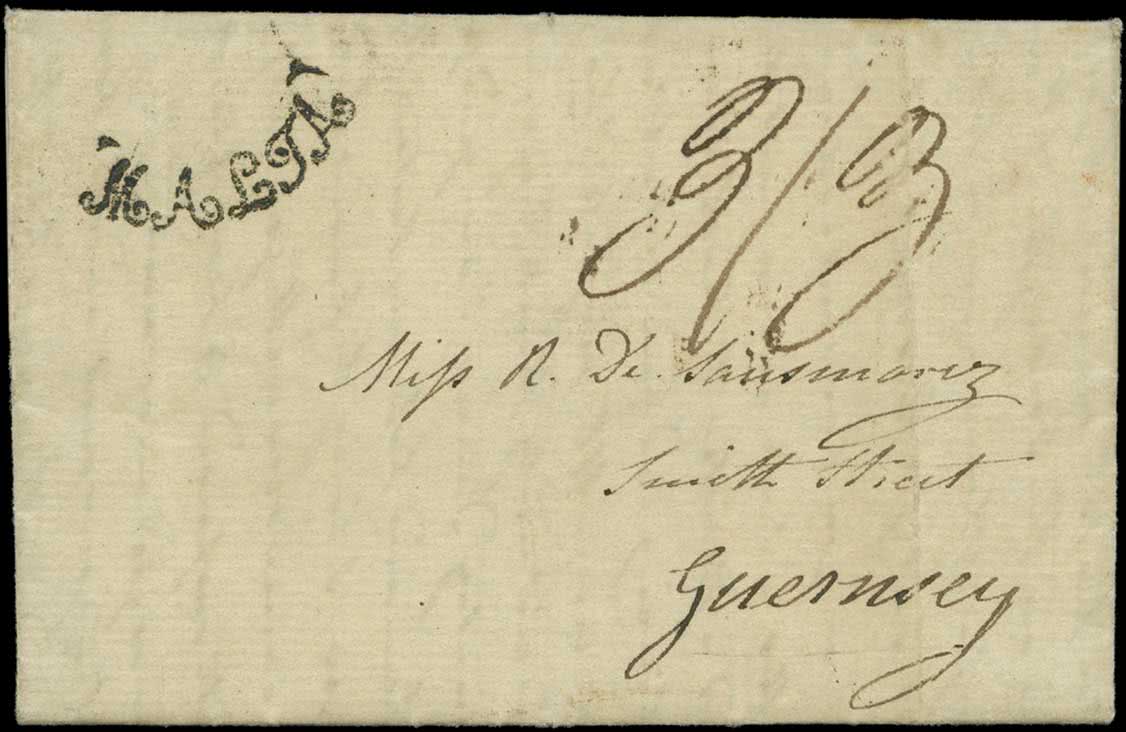 MALTA
3/3
Miſs R. De Sausmarez
Smith Street
Guernsey